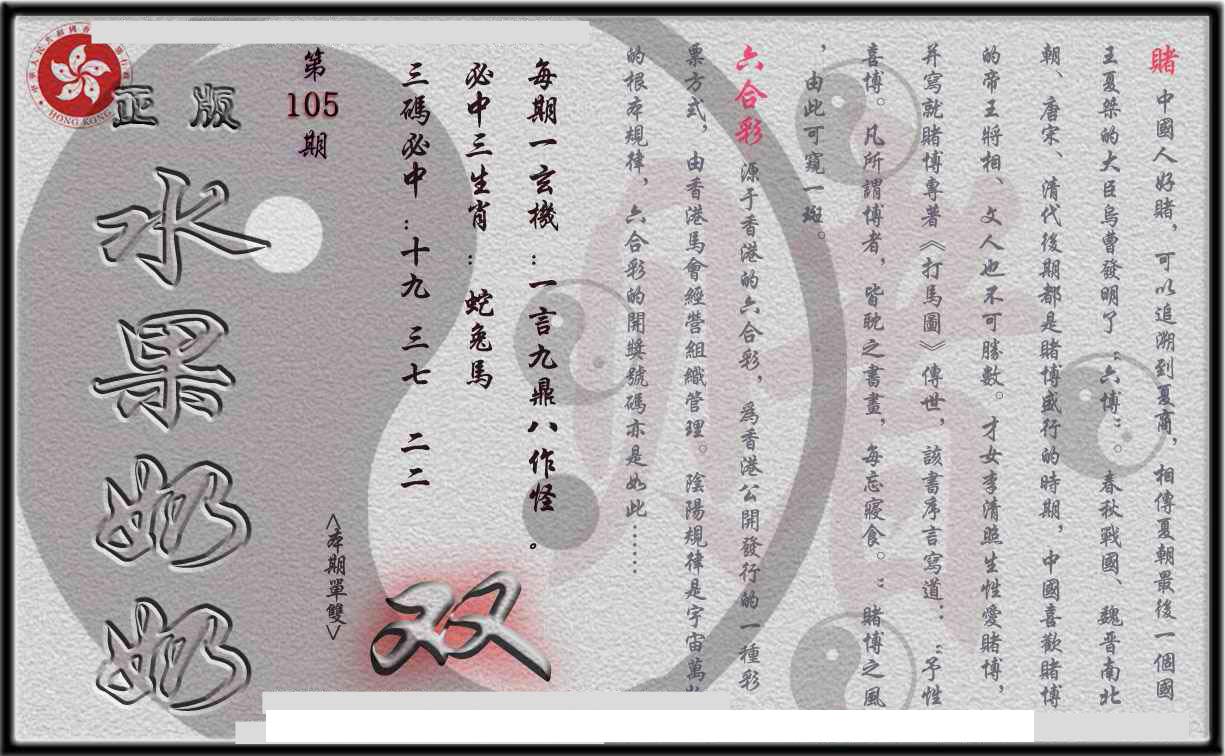 賭 中國人好賭，可以追溯到夏商，相傳夏朝最後一個國
王夏桀的大臣烏曹發明了“六博”。春秋戰國、魏晋南北
朝、唐宋、清代後期都是賭博盛行的時期，中國喜歡賭博
的帝王將相、文人也不可勝數。才女李清照生性愛賭博，
并寫就賭博專著《打馬圖》傳世，該書序言寫道：“予性
喜博。凡所謂博者，皆耽之書畫，每忘寢食。”賭博之風
，由此可窺一斑。
六合彩 源于香港的六合彩，爲香港公開發行的一種彩
票方式，由香港馬會經營組織管理。陰陽規律是宇宙萬
的根本規律，六合彩的開獎號碼亦是如此……
每期一玄機：一言九鼎八作怪。
必中三生肖：蛇兔馬
三碼必中：十九 三七 二二
双
<本期單雙>
第
105
期
正版
水果奶奶
HONG KONG